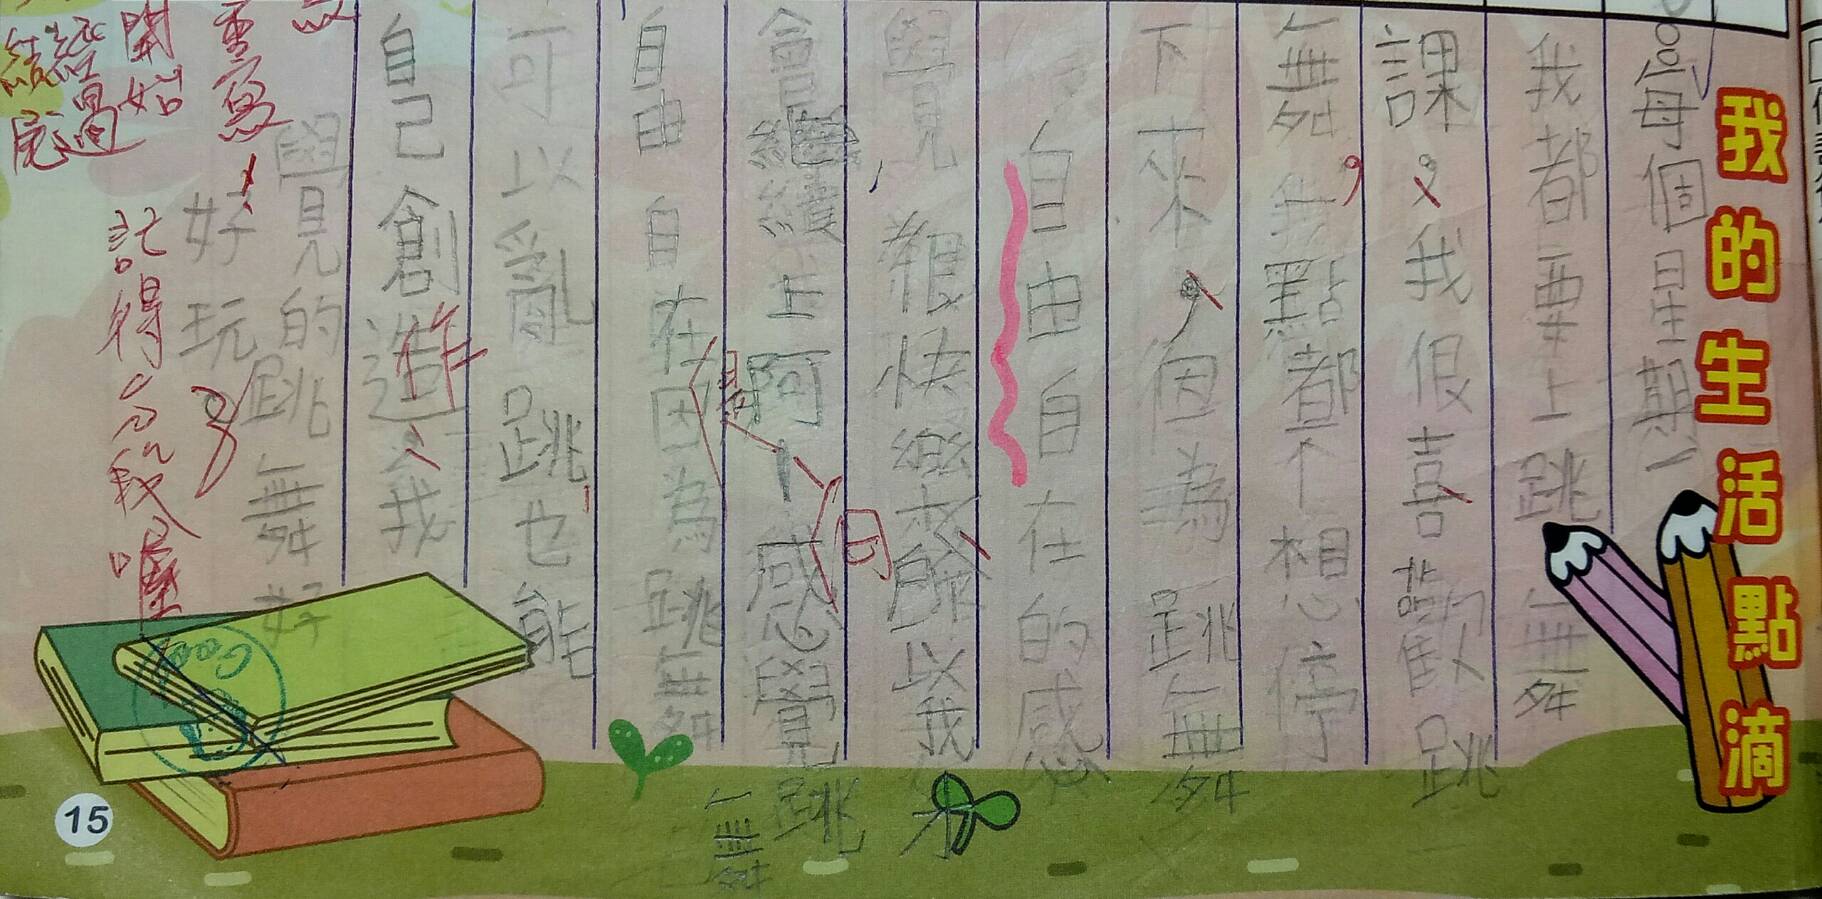 我的生活點滴
每個星期一
我都要上跳舞
課，我很喜歡跳
舞，無點都不想停
下來，因為跳舞
自由自在的感
覺很快樂，所以我才
會繼續上啊！感覺跳舞
是
日
自由自在因為跳舞
可以亂跳也能
自己創造，我
作
覺的跳舞好
好玩。
重寫
開始
經過
結尾
記得分段喔
Good
15